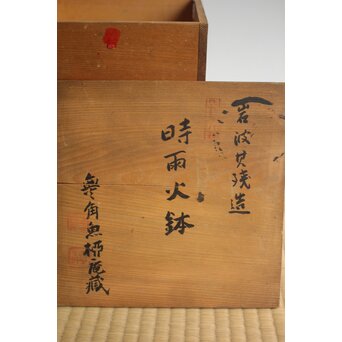 岩波其残造
時雨火鉢
無角魚楼庵蔵